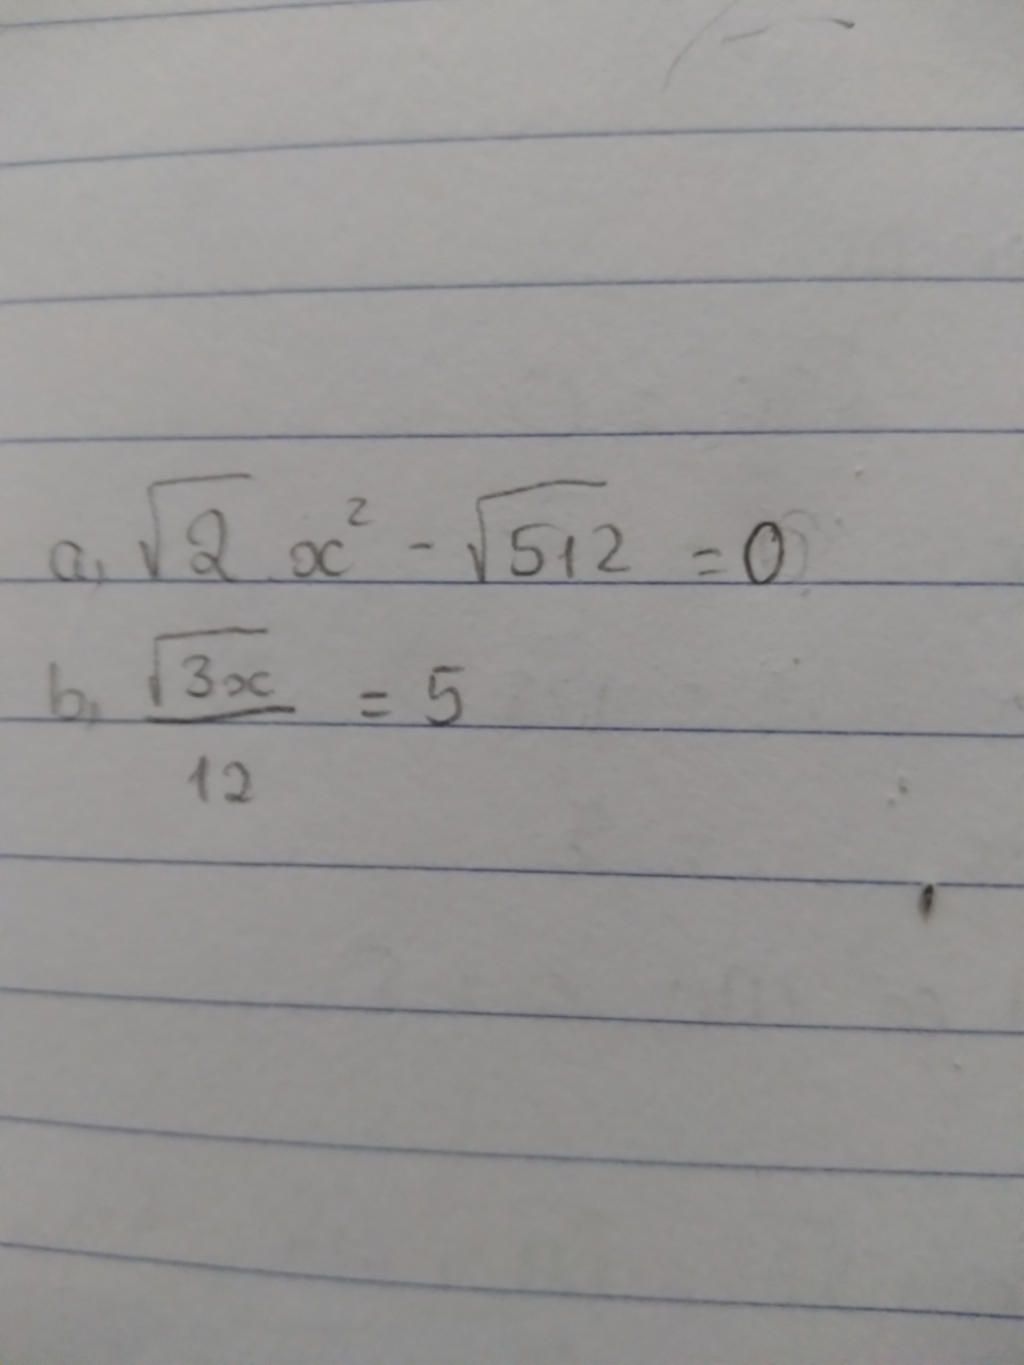 a, √2 x² - √512 = 0
b, √3x / 12 = 5